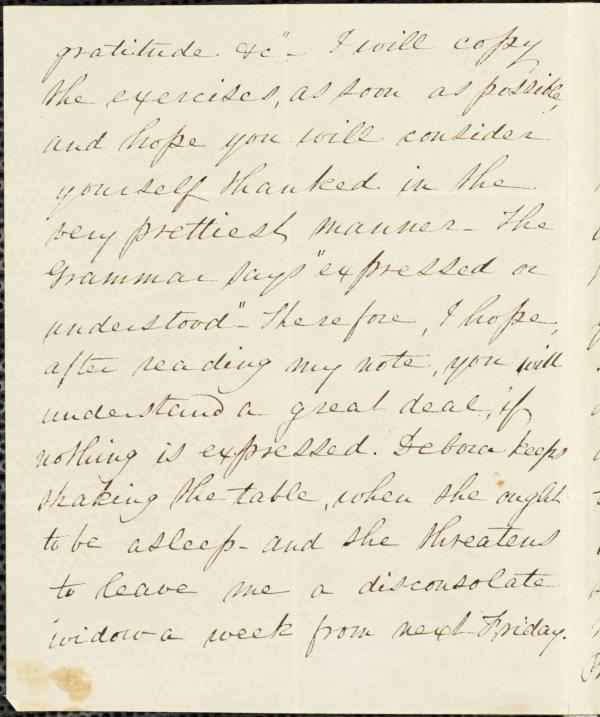 gratitude &c" - I will copy
the exercises, as soon as possible,
and hope you will consider
yourself thanked in the
very prettiest manner - The
Grammar says "expressed or
understood" - Therefore, I hope,
after reading my note, you will
understand a great deal, if
nothing is expressed. Debora keeps
shaking the table, when she ought
to be asleep - and she threatens
to leave me a disconsolate
widow a week from next Friday.